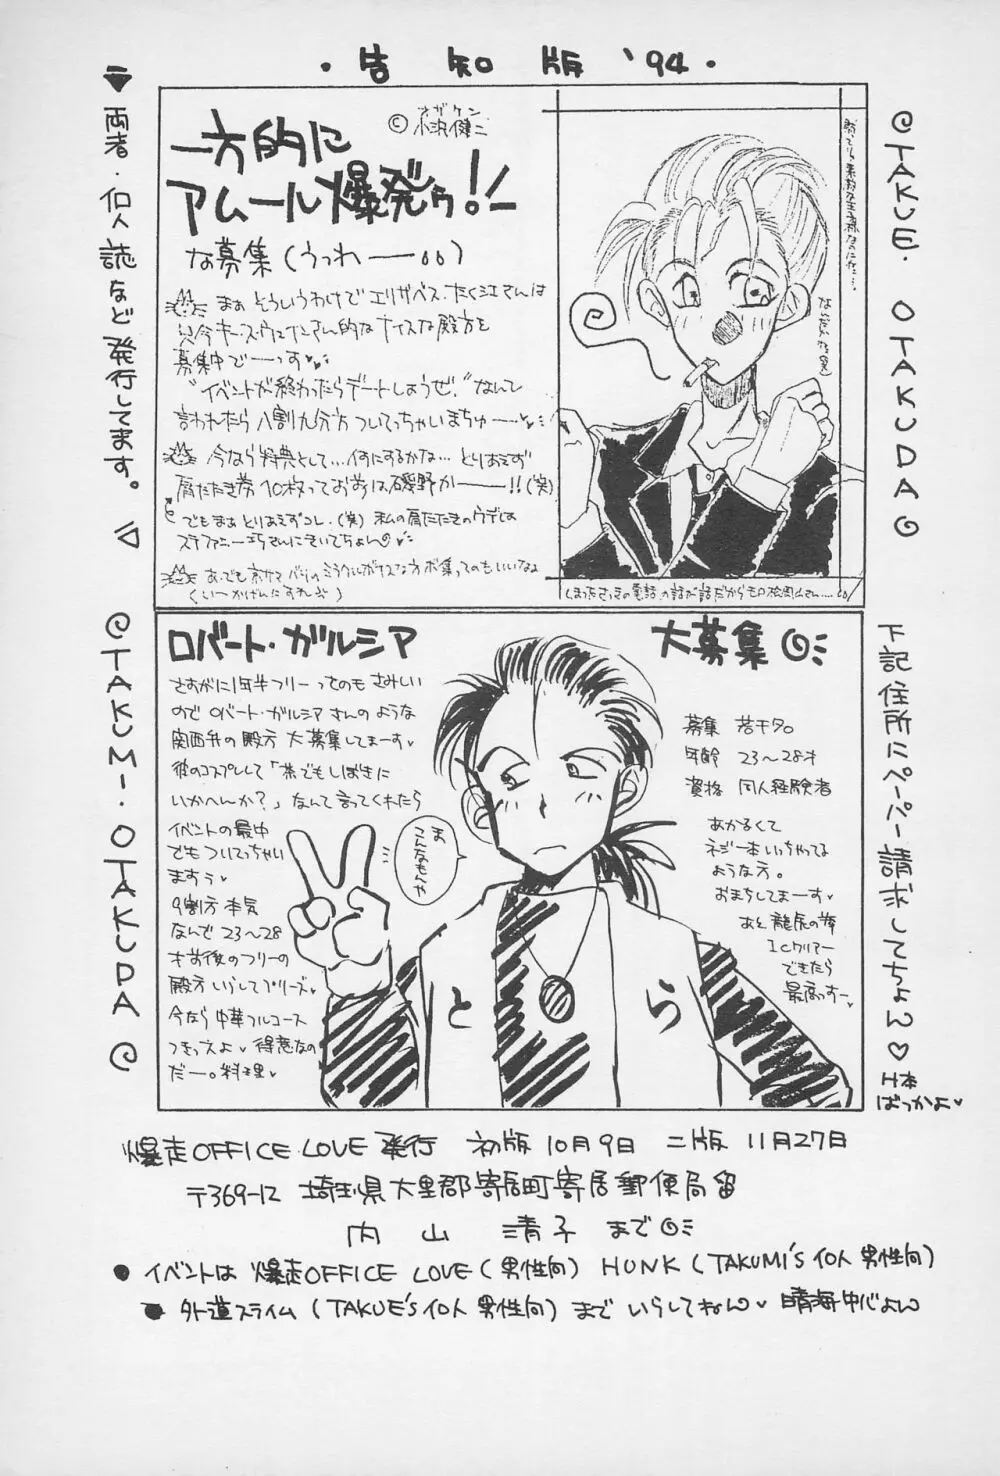 ・告知版 '94・
▼両者・個人誌など発行してます。
©TAKUE. OTAKUDA
©小沢健二
オザケン
一方的に
アムール爆発ゥ!!
な募集(うっわ——。。)
まぁ そういうわけで エリザベス・たく江さんは
只今
さん的なナイスな殿方を
募集中で——っす♥♥
"イベントが終わったらデートしようぜ!"なんて
言われたら 八割九分方 ついてっちゃいまちゅ——♥♥
今なら特典として…何にするかな… とりあえず
肩たたき券 10枚ってお前は磯野か———!!(笑)
でもまぁ とりあえずコレ.(笑) 私の肩たたきのウデは
ステファニー
さんにきいてちょん♥
あ、でも
ミラクル
な方 ボ集ってのもいいなぁ
(い〜かげんにすれぶ)
ロバート・ガルシア
大募集
さすがに1年半フリーってのも さみしい
ので ロバート・ガルシアさんのような
関西弁の殿方 大募集してまーす♥
彼のコスプレして「茶でもしばきに
いかへんか?」なんて言ってくれたら
イベントの最中
でもついてっちゃい
ますぅ♥
9割方本気
なんで 23〜28
才前後のフリーの
殿方いらしてプリーズ♥
今なら中華フルコース
つきっスよ♥得意なの
だー。料理♥
ま
こんなもんや
募集 若干名
年齢 23〜28才
資格 同人経験者
あかるくて
ネジ一本いっちゃってる
ような方。
おまちしてまーす♥
あと龍虎の拳
1Cクリアー
できたら
最高っすー♥
とら
©TAKUMI・OTAKUDA
下記住所にペーパー請求してちょん♡
H本
ばっかよ♥
爆走OFFICE LOVE 発行 初版 10月9日 二版 11月27日
〒369-12 埼玉県大里郡寄居町寄居郵便局留
内山 清子 まで
● イベントは 爆走OFFICE LOVE(男性向) HUNK(TAKUMI'S 個人 男性向)
● 外道スライム(TAKUE'S 個人 男性向) まで いらしてねん♥ 晴海中心よん